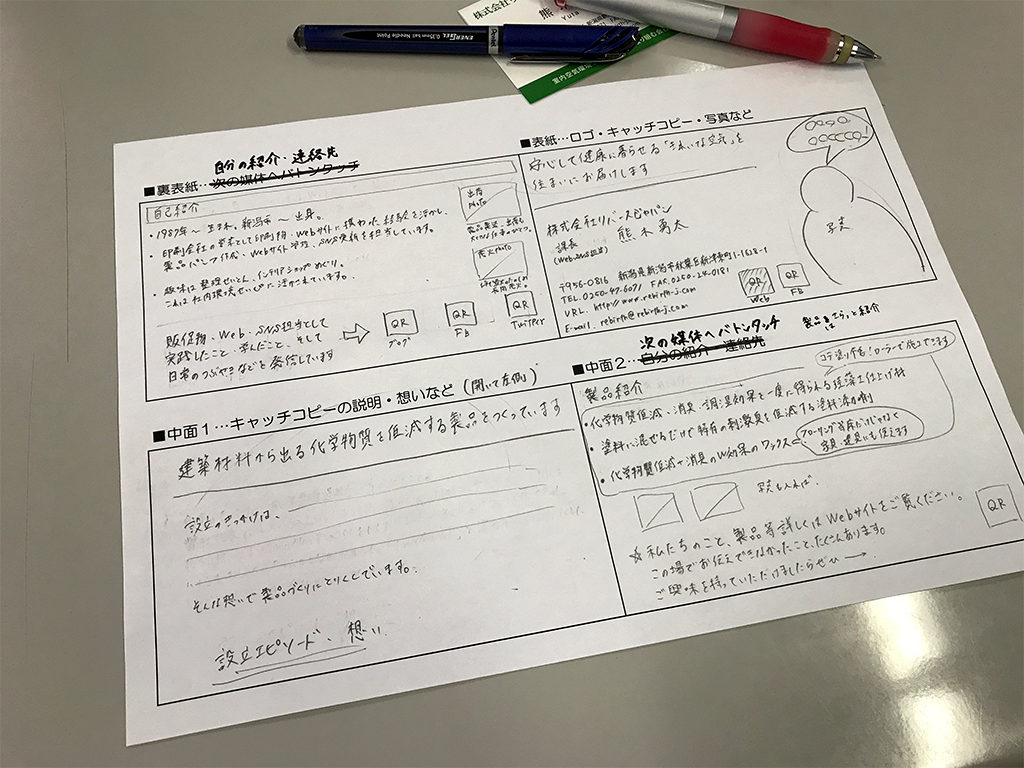 株式会社
熊
Yuta
室内空気環境
PENTEL
ENERGEL
0.35mm ball Needle Point
自分の紹介・連絡先
■裏表紙…次の媒体へバトンタッチ
自己紹介
・1987年〜生まれ。新潟市〜出身。
・印刷会社の営業として印刷物・Webサイトに携わった経験を活かし、
製品パンフ作成・Webサイト管理・SNS更新を担当しています。
・趣味は整理せいとん、インテリアショップめぐり。
これは社内環境せいびに活かされています。
出展
photo
photo
販促物・Web・SNS担当として
実践したこと・学んだこと、そして
日常のつぶやきなどを発信しています
QR
ブログ
QR
FB
QR
Twitter
■表紙…ロゴ・キャッチコピー・写真など
安心して健康に暮らせる「きれいな空気」を
住まいにお届けします
株式会社リバースジャパン
課長
(Web,SNS担当)
熊木勇太
〒956-0816 新潟県新潟市秋葉区新津東町1-1628-1
TEL.0250-47-6071 FAX.0250-24-0181
URL. http://www.rebirth-j.com
E-mail. rebirth@rebirth-j.com
QR
Web
QR
FB
写真
■中面1…キャッチコピーの説明・想いなど(開いて左側)
建築材料から出る化学物質を低減する製品をつくっています
設立のきっかけは、
そんな想いで製品づくりにとりくんでいます。
設立エピソード、想い
次の媒体へバトンタッチ
製品をさらっと紹介
■中面2…自分の紹介・連絡先
製品紹介
コテ塗り不要！ローラーで施工できます
・化学物質低減・消臭・調湿効果を一度に得られる珪藻土仕上げ材
・塗料に混ぜるだけで特有の刺激臭を低減する塗料添加剤
・化学物質低減+消臭のW効果のワックス
フローリング・床だけじゃなく
家具・建具にも使えます
写真も入れば、
☆私たちのこと、製品等詳しくはWebサイトをご覧ください。
この場でお伝えできなかったこと、たくさんあります。
ご興味を持っていただけましたらぜひ→
QR